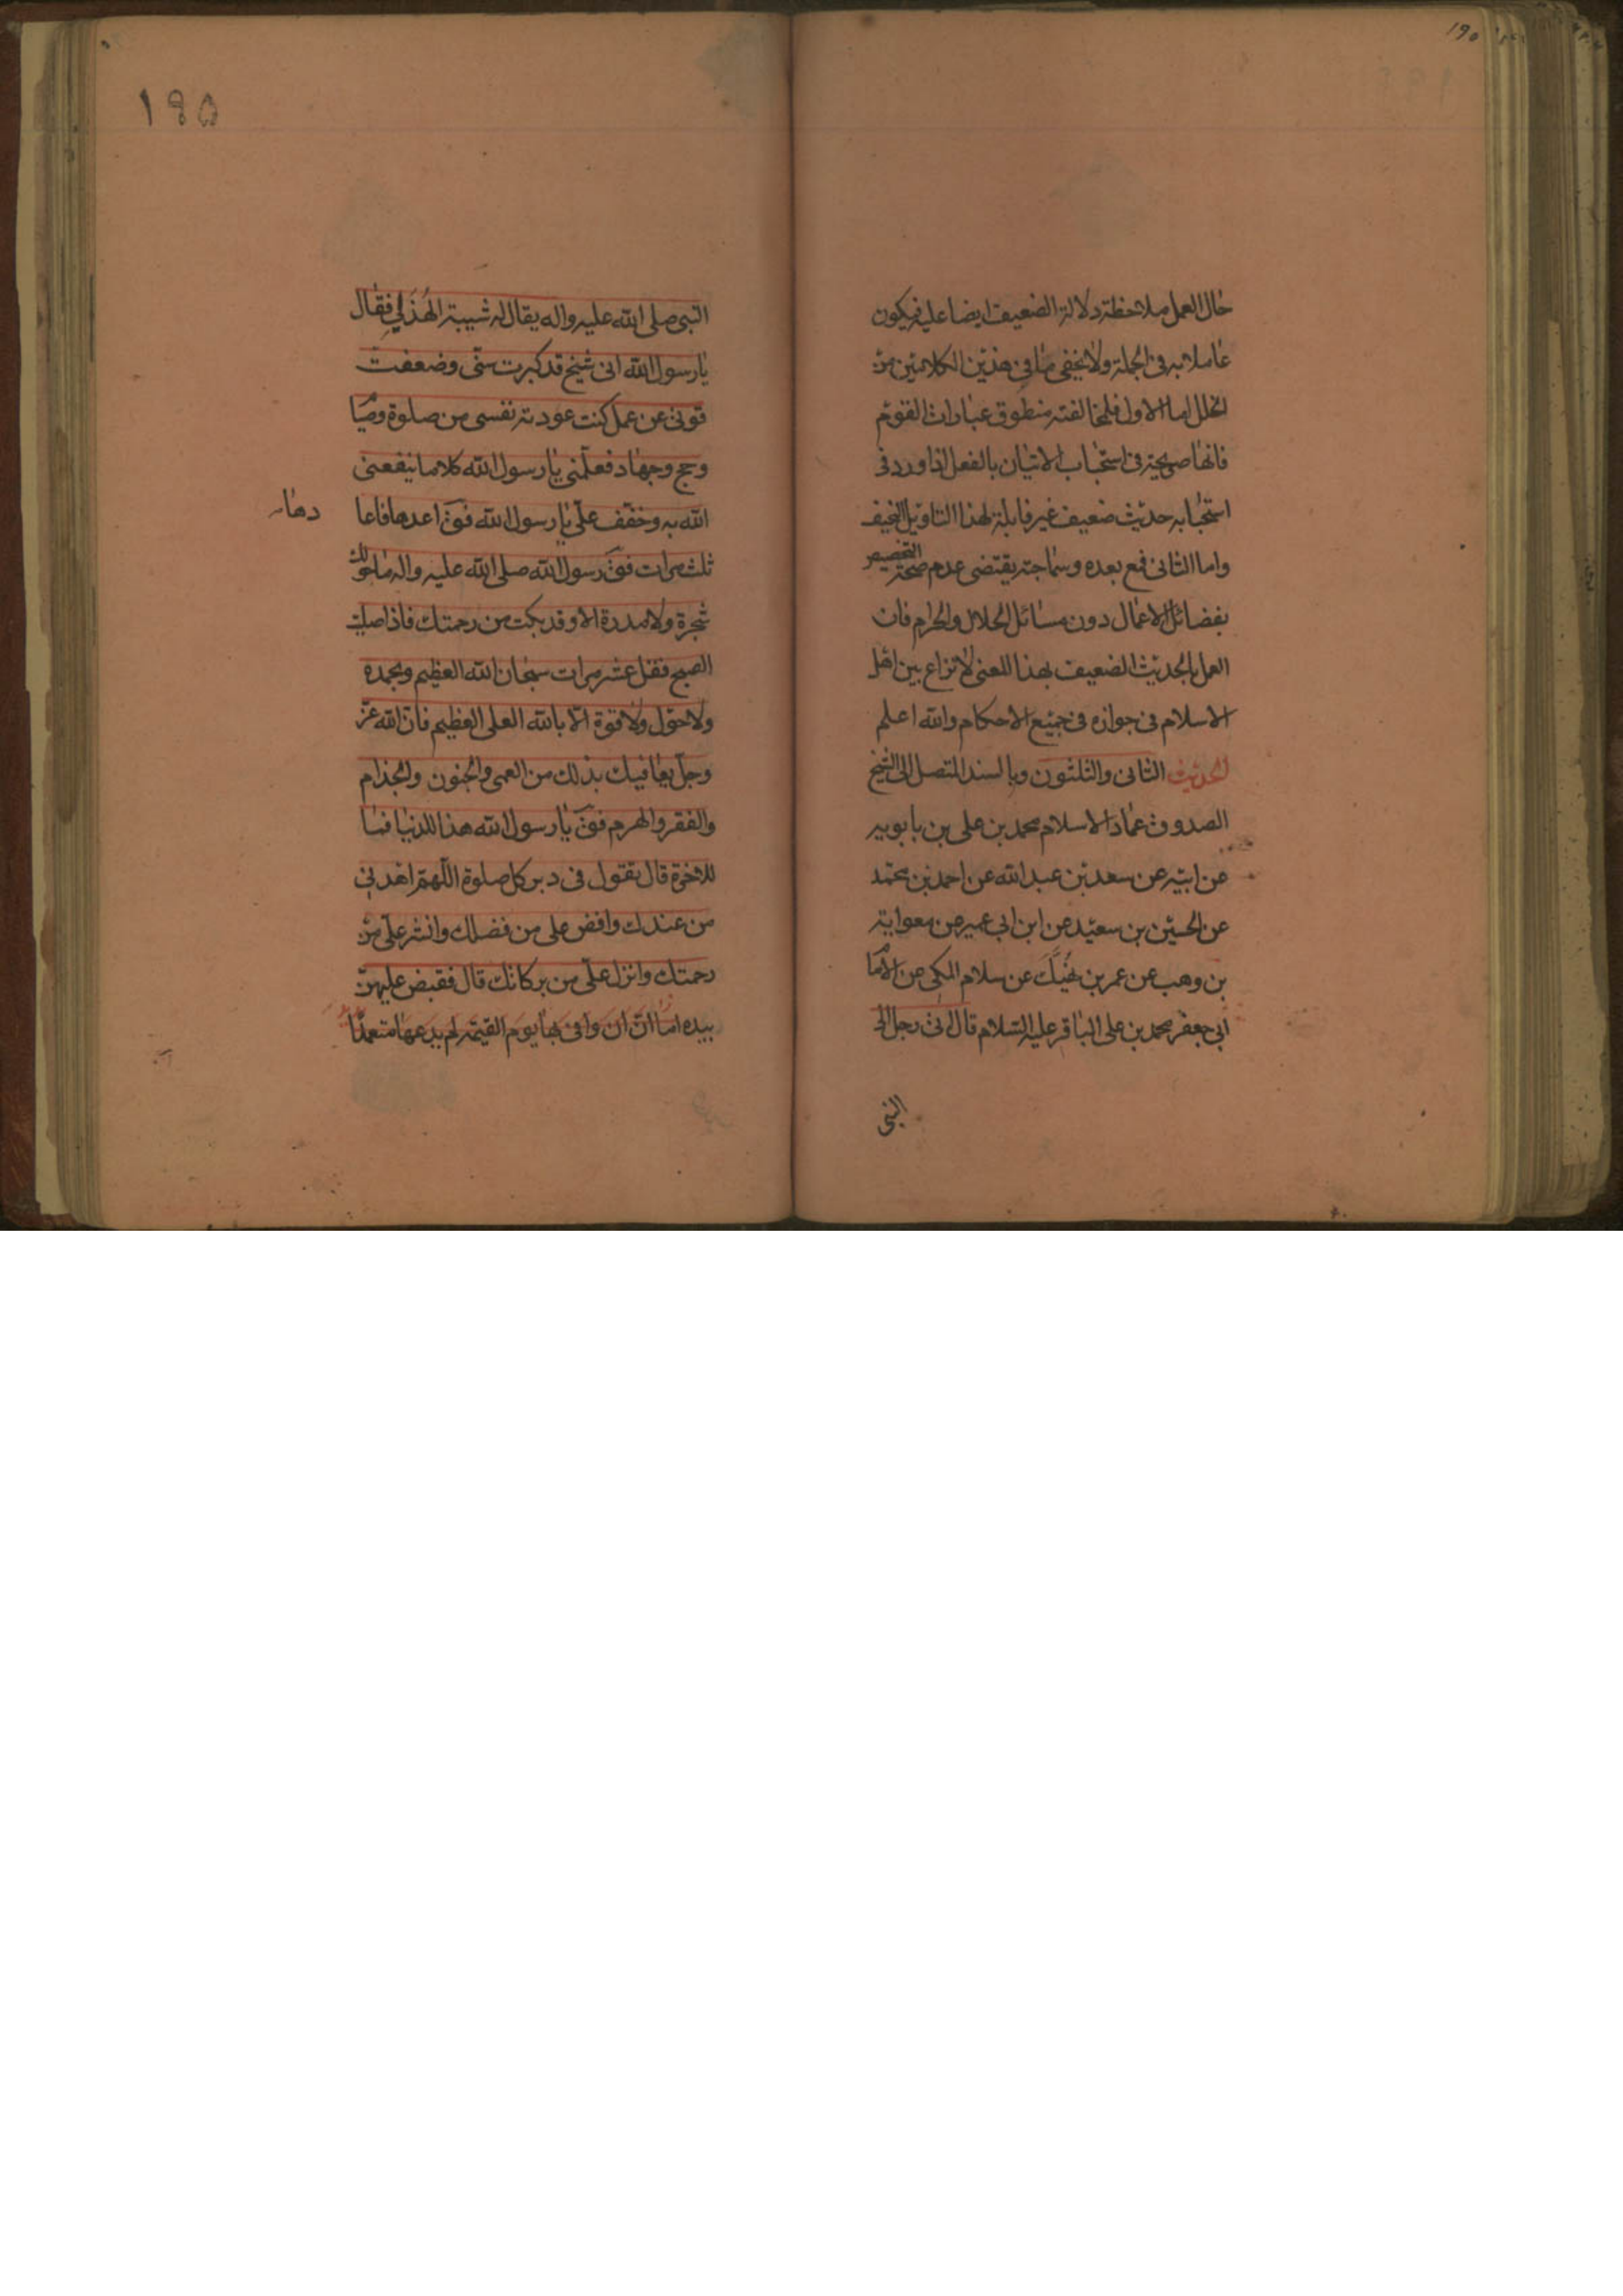 ١٩٥
حال العمل ملاحظة دلالة الضعيف ايضا عليه فيكون
عاملا به فى الجملة ولا يخفى ما فى هذين الكلامين من
الخلل اما الاول فلمخالفته منطوق عبارات القوم
فانها صريحة فى استحباب الاتيان بالفعل اذا ورد فى
استحبابه حديث ضعيف غير قابلة لهذا التاويل السخيف
واما الثانى فمع بعده وسماجته يقتضى عدم صحة التخصيص
بفضائل الاعمال دون مسائل الحلال والحرام فان
العمل بالحديث الضعيف بهذا المعنى لا نزاع بين اهل
الاسلام فى جوازه فى جميع الاحكام والله اعلم
الحديث الثانى والثلثون وبالسند المتصل الى الشيخ
الصدوق عماد الاسلام محمد بن على بن بابويه
عن ابيه عن سعد بن عبد الله عن احمد بن محمد
عن الحسين بن سعيد عن ابن ابى عمير عن معوية
بن وهب عن عمر بن نهيك عن سلام المكى عن الاما
ابى جعفر محمد بن على الباقر عليه السلام قال اتى رجل الى
النبى
١٩٥
النبى صلى الله عليه واله يقال له شيبة الهذلى فقال
يا رسول الله انى شيخ قد كبرت سنى وضعفت
قوتى عن عمل كنت عودته نفسى من صلوة وصيا
وحج وجهاد فعلمنى يا رسول الله كلاما ينفعنى
الله به وخفف على يا رسول الله فقَ اعدها فاعا
دها
ثلث مرات فقَ رسول الله صلى الله عليه واله ما حولك
شجرة ولا مدرة الا وقد بكت من رحمتك فاذا صليت
الصبح فقل عشر مرات سبحان الله العظيم وبحمده
ولا حول ولا قوة الا بالله العلى العظيم فان الله عز
وجل يعافيك بذلك من العمى والجنون والجذام
والفقر والهرم فقَ يا رسول الله هذا للدنيا فما
للاخرة قال تقول فى دبر كل صلوة اللهم اهدنى
من عندك وافض على من فضلك وانشر على من
رحمتك وانزل على من بركاتك قال فقبض عليهن
بيده اما ان وافى بها يوم القيمة لم يدعها متعمدا